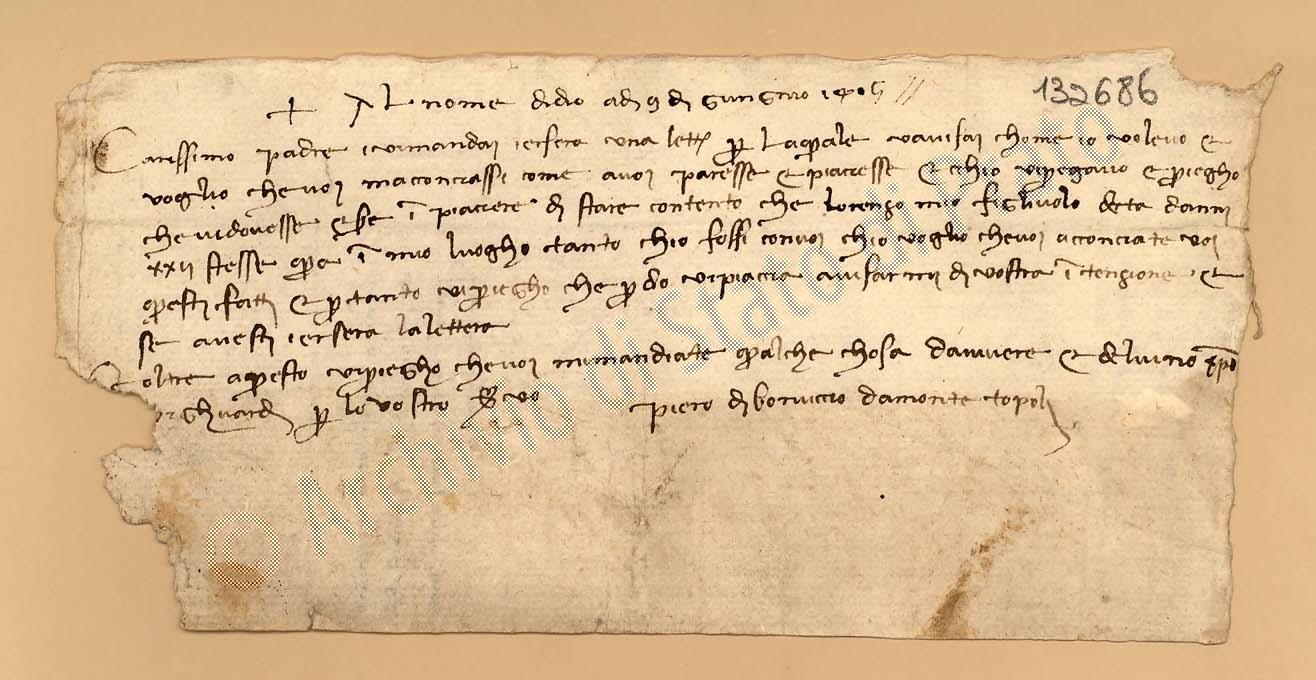 132686
+ Al nome didio adi 9 di gungno 1405 //
Carissimo padre ivimandai iersera una lettª p laquale vavisai chome io volevo e
voglio chevoi macconciassi come avoi paresse e piacesse e chio vi pegavo e priegho
chevidovesse in piacere di stare contento che lorenzo mio figlivolo deta danni
xxii stesse in mio luogho tanto chio fossi convoi chio voglio chevoi acconciate voi
questi fatti e p tanto vipriegho che p dio vipiaccia avisarmi di vostra intenzione e
se avesti iersera la lettera
E oltre aquesto vipriegho chevoi mimandiate qualche chosa davivere e delvino xpo
vighuardi p lo vostro piero di bonuccio damonte topoli
© Archivio di Stato di Prato